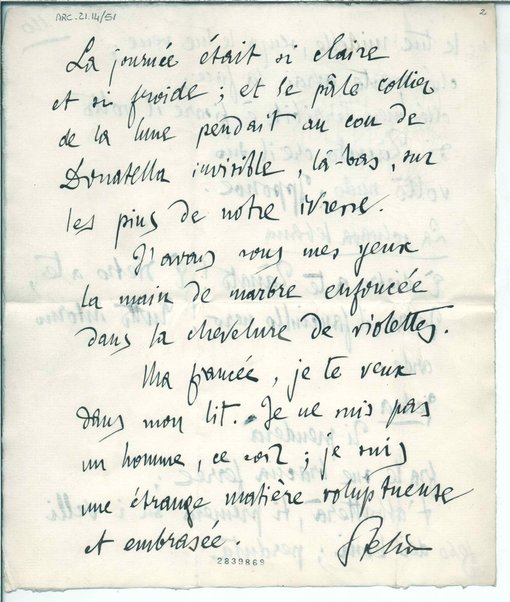 ARC. 21. 14/51
2
La journée était si claire
et si froide ; et le pâle collier
de la lune pendait au cou de
Donatella invisible, là-bas, sur
les pins de notre ivresse.
J'avais sous mes yeux
la main de marbre enfoncée
dans la chevelure de violettes.
Ma fiancée, je te veux
dans mon lit. Je ne suis pas
un homme, ce soir ; je suis
une étrange matière voluptueuse
et embrasée.
2839869